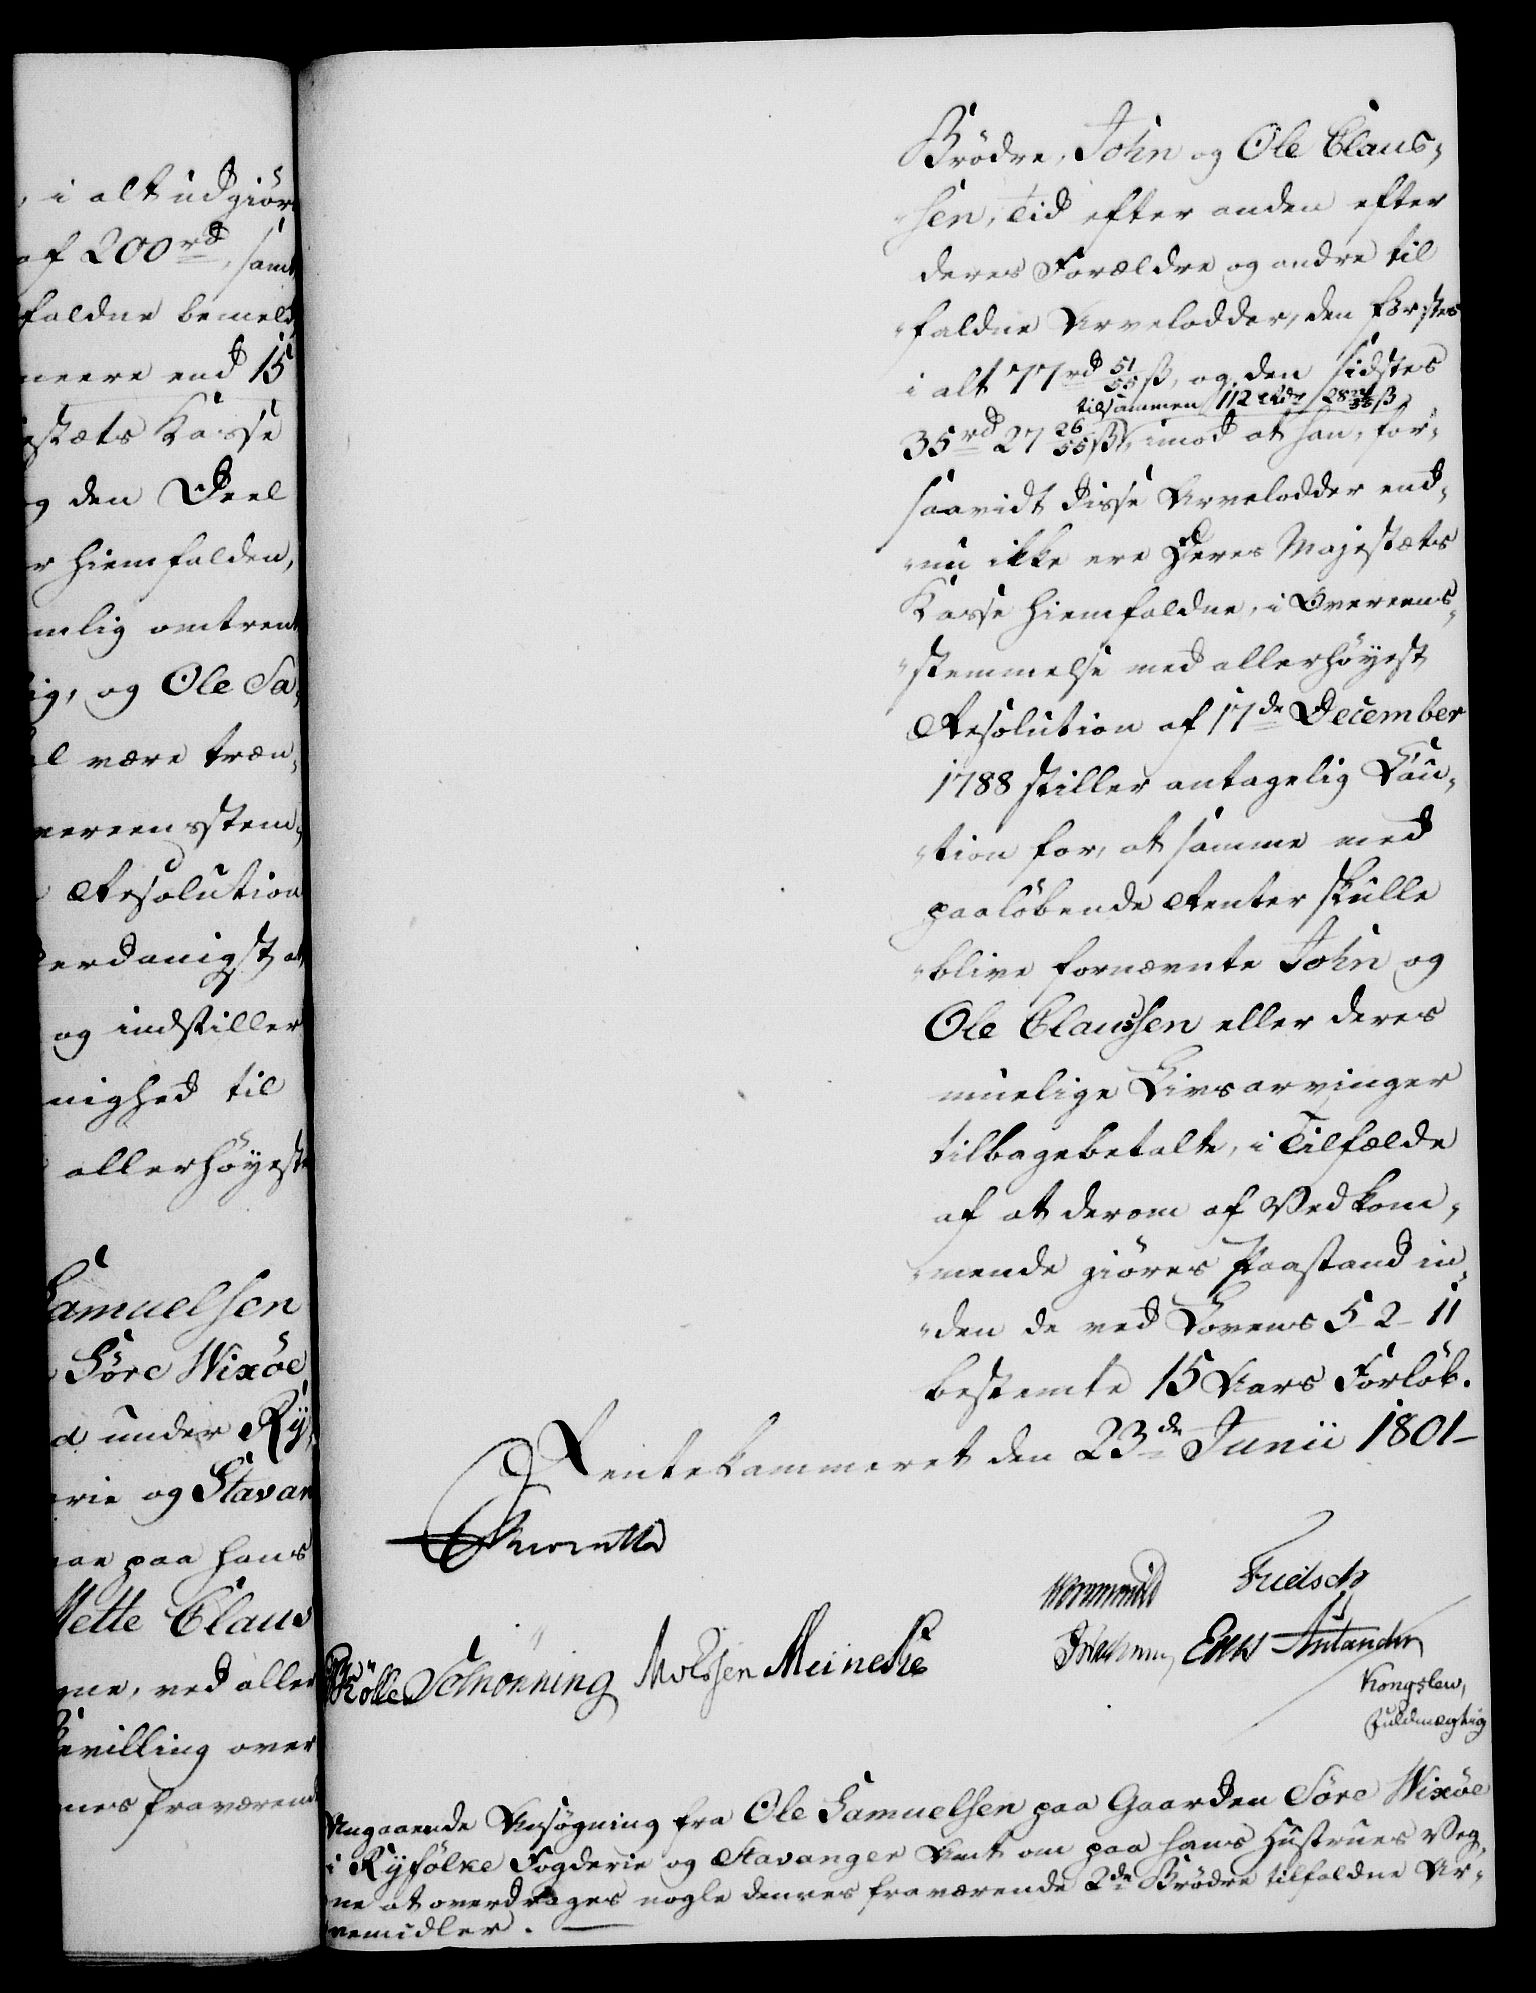 i alt udgiör
af 200 rd, samt
faldne bemeld
meere end 15
estæts Kasse
g den Deel
r hiemfalden,
mlig omtrent
ig, og Ole Sa,
l være træn,
vereensstem,
Resolution
erdanigst at
og indstiller
nighed til
allerhöyeste
Samuelsen
Söre Wixöe
d under Ry,
erie og Stavan
paa hans
Mette Claus
gne, ved aller
Bevilling over
nes fraværend
Brödre, John og Ole Claus-
sen, Tid efter anden efter
deres Forældre og andre til
faldne Arvelodder, den förstes
i alt 77 rd 51/55 ß, og den sidstes
tilsammen 112 Rdr 28 22/55 ß
35 rd 27 26/55 ß, imod at han, for-
saavidt disse Arvelodder end-
nu ikke ere Deres Majestæts
Kasse hiemfaldne, i Overeens-
stemmelse med allerhöyest
Resolution af 17de December
1788 stiller antagelig Cau-
tion for, at samme med
paalöbende Renter skulle
blive fornævnte John og
Ole Claussen eller deres
muelige Livsarvinger
tilbagebetalte, i Tilfælde
af at derom af Vedkom-
mende giöres Paastand in-
den de ved Lovens 5-2-11
bestemte 15 Aars Forlöb.
Rentekammeret den 23de Junii 1801-
Reventlow
Wormskiold Frelsch
Schönning Molssen Meinecke
Kongslew,
Fuldmægtig
Angaaende Ansögning fra Ole Samuelsen paa Gaarden Söre Wixöe
i Ryfölke Fogderie og Stavanger Amt om paa hans Hustrues Veg-
ne at overdrages nogle dennes fraværende 2de Brödre tilfaldne Ar-
vemidler.